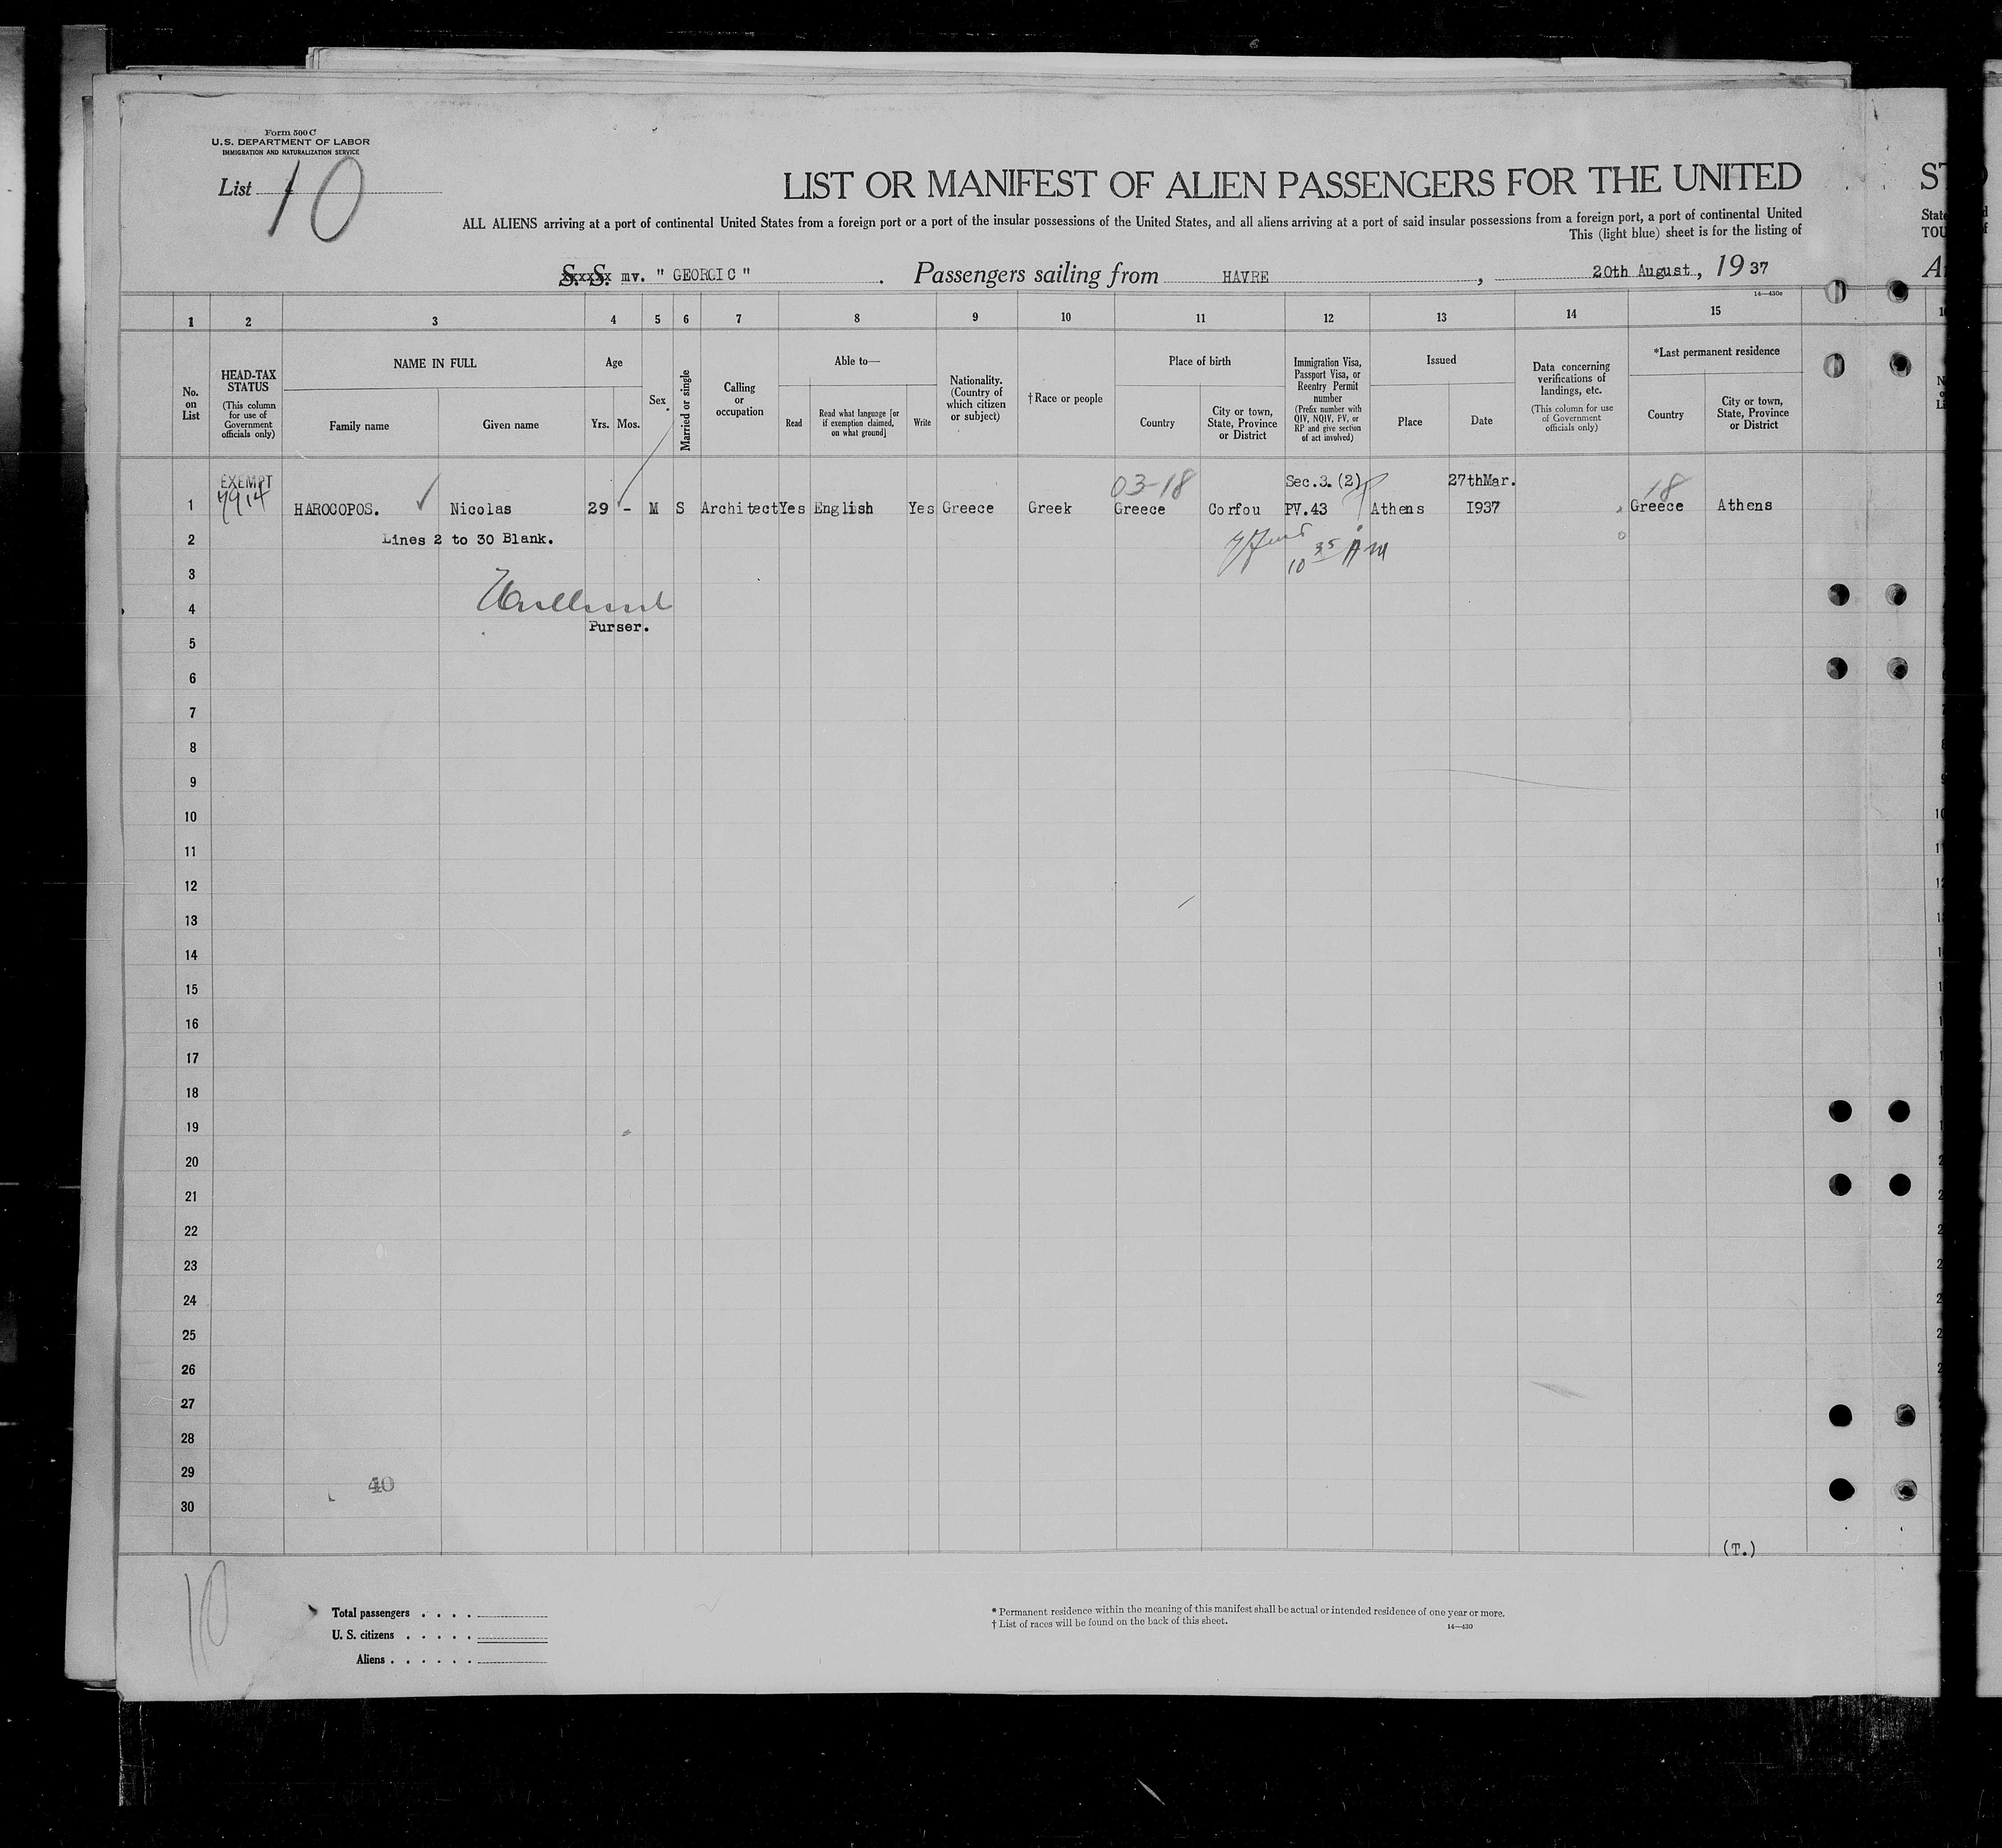 Form 500 C
U.S. DEPARTMENT OF LABOR
IMMIGRATION AND NATURALIZATION SERVICE
List 10
LIST OR MANIFEST OF ALIEN PASSENGERS FOR THE UNITED
ST
ALL ALIENS arriving at a port of continental United States from a foreign port or a port of the insular possessions of the United States, and all aliens arriving at a port of said insular possessions from a foreign port, a port of continental United
State
This (light blue) sheet is for the listing of
TOU
S. S. mv. " GEORGIC " . Passengers sailing from HAVRE , 20th August, 19 37
A
14—430c
1 2 3 4 5 6 7 8 9 10 11 12 13 14 15
No. on List
HEAD-TAX STATUS
(This column for use of Government officials only)
NAME IN FULL
Family name
Given name
Age
Yrs. Mos.
Sex
Married or single
Calling or occupation
Able to—
Read
Read what language [or if exemption claimed, on what ground]
Write
Nationality. (Country of which citizen or subject)
†Race or people
Place of birth
Country
City or town, State, Province or District
Immigration Visa, Passport Visa, or Reentry Permit number
(Prefix number with QIV, NQIV, PV, or RP and give section of act involved)
Issued
Place
Date
Data concerning verifications of landings, etc.
(This column for use of Government officials only)
*Last permanent residence
Country
City or town, State, Province or District
EXEMPT 03-18 Sec.3.(2) 27thMar. 18
1 HAROCOPOS. Nicolas 29 - M S Architect Yes English Yes Greece Greek Greece Corfou PV.43 Athens I937 Greece Athens
2 Lines 2 to 30 Blank.
10 35 AM
3
4
Purser.
5
6
7
8
9
10
11
12
13
14
15
16
17
18
19
20
21
22
23
24
25
26
27
28
29
40
30
(T.)
10
Total passengers . . . .
U. S. citizens . . . . .
Aliens . . . . . .
* Permanent residence within the meaning of this manifest shall be actual or intended residence of one year or more.
† List of races will be found on the back of this sheet.
14—430